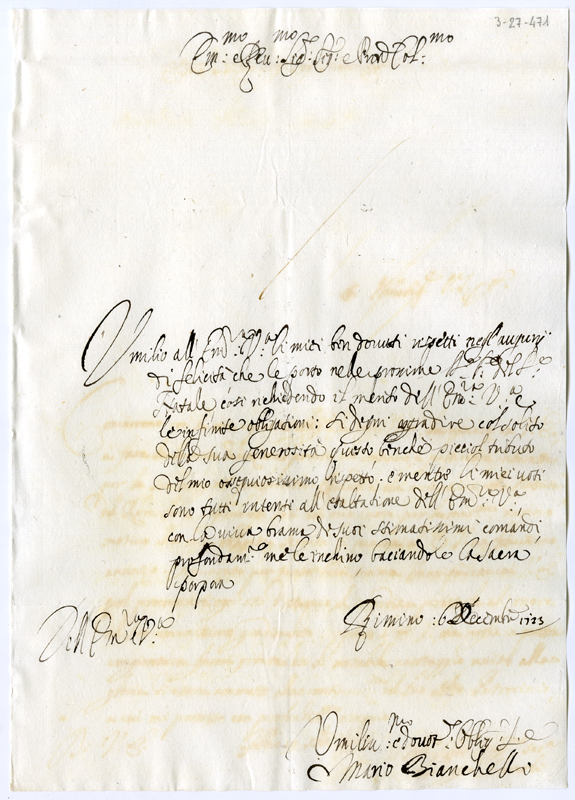 3-27-471
Em:mo e Rev:mo Sig:r Sig:r e Pron Col:mo
Umilio all'Em:ra V:a li miei ben dovuti rispetti nell'augurij
di felicità che le porto nelle prossime F:e del S:o
Natale così richiedendo il merito dell'Em:ra V:a e
le infinite obligationi: si degni aggradire col solito
della sua generosità questo benchè picciol tributo
del mio ossequiosissimo rispetto: e mentre li miei voti
sono tutti intenti all'esaltatione dell'Em:ra V:a,
con la viva brama de suoi stimatissimi comandi,
profondam:te me le inchino, baciandole la Sacra
porpora
Dell'Em:ra V:a
Rimino: 6 Decembre 1723
Umiliss:mo e devot: Oblig: S:e
Mario Bianchelli